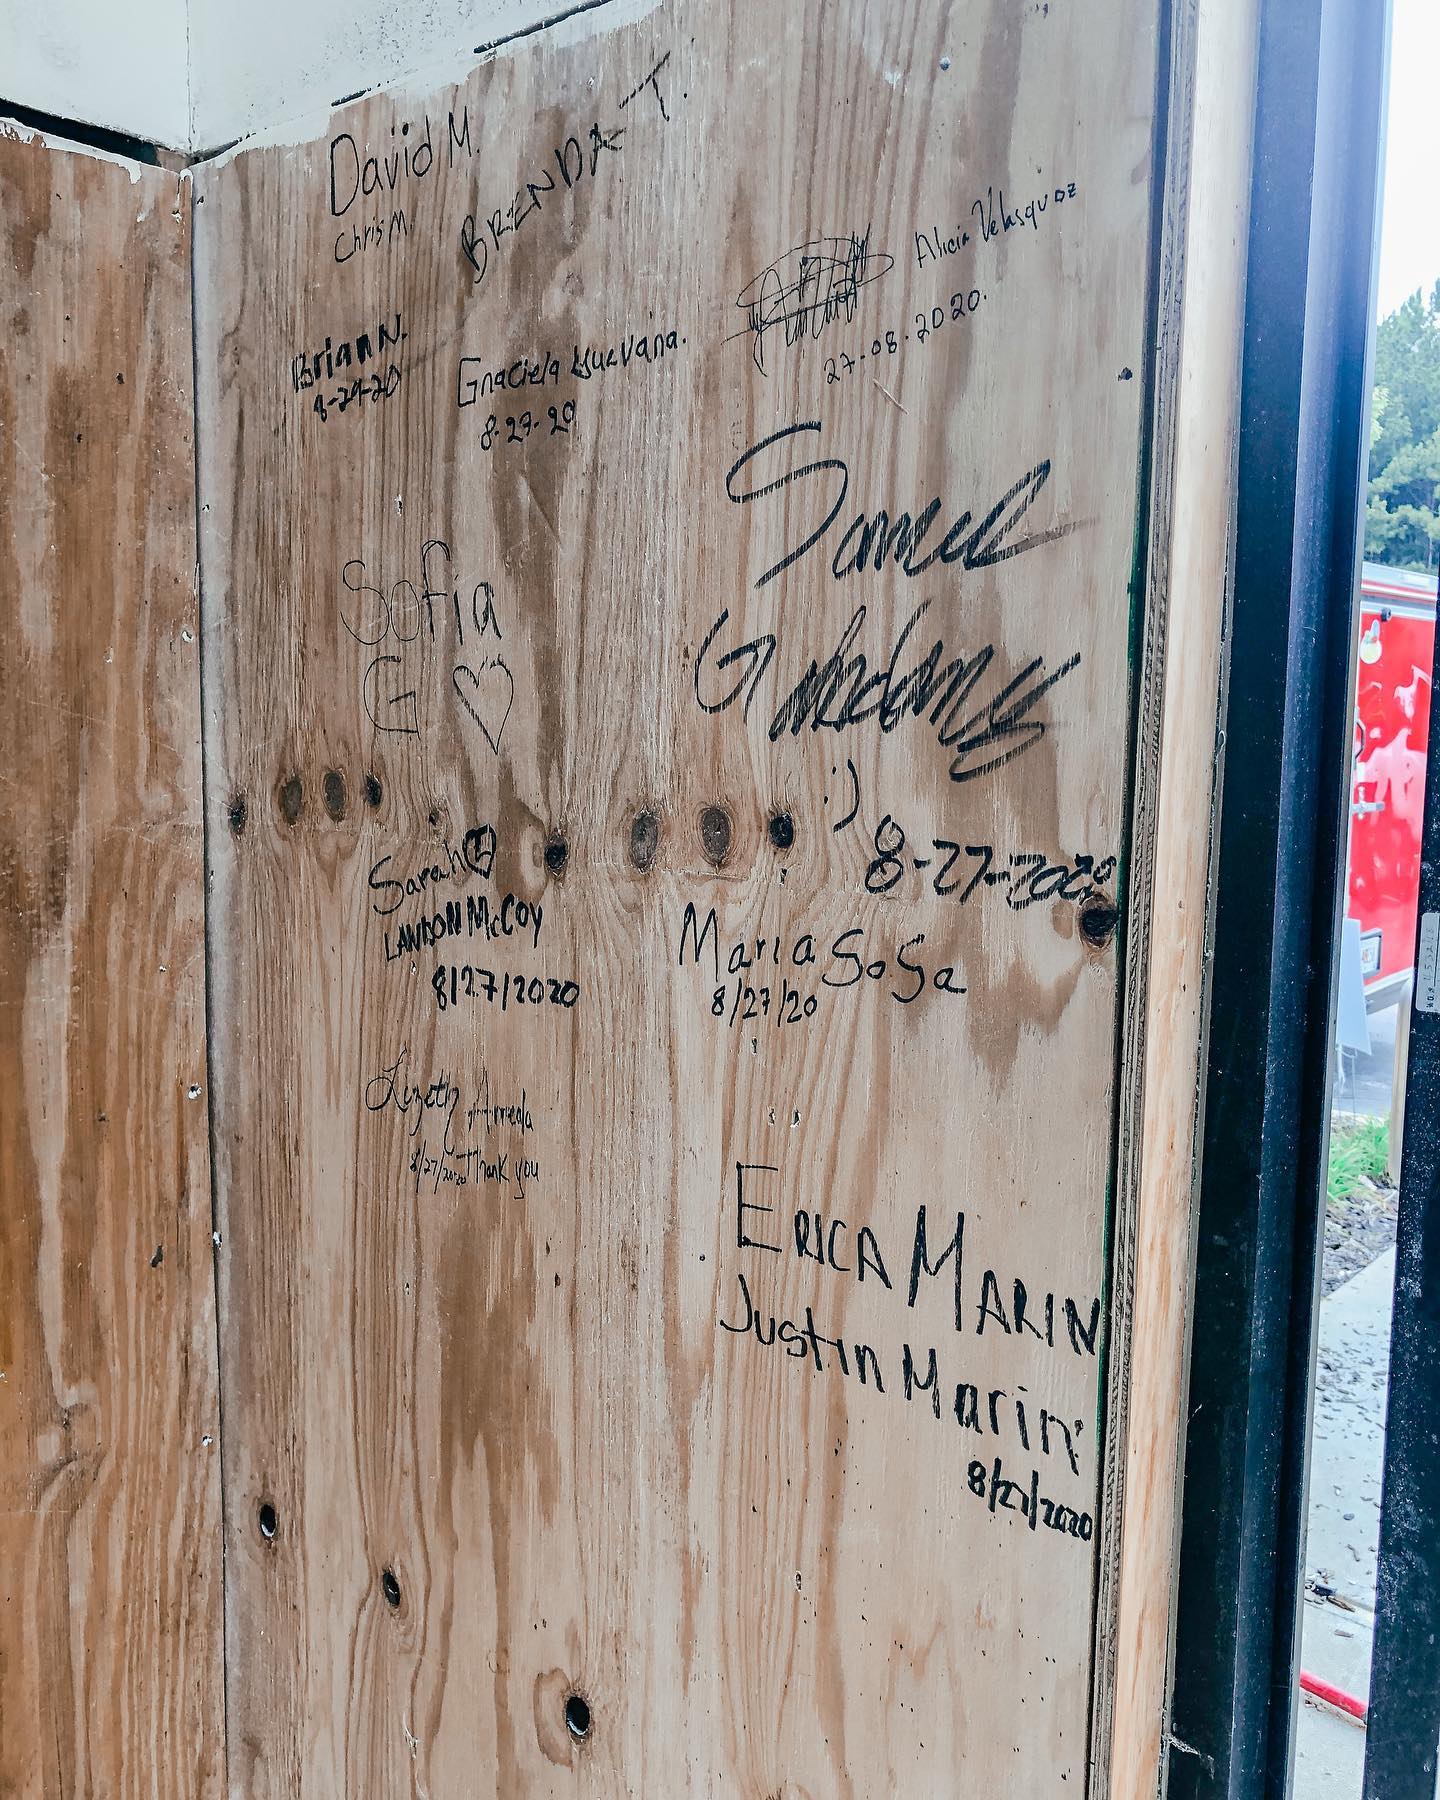 David M.
Chris M.
BRENDA T.
Alicia Velasquez
27.08.2020.
Brian N.
8-29-20
Graciela
8-27-20
Samuel
G
:)
8-27-2020
Sofia
G ♡
Sarah
LANDON McCOY
8/27/2020
Maria SoSa
8/27/20
Lizeth Arreola
8/27/2020 Thank you
ERICA MARIN
Justin Marin
8/27/2020